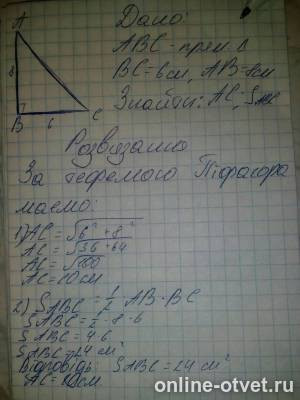 A
Дано:
ABC - прям. Δ
8
BC=6см, AB=8см
B 6 C
Знайти: AC,
Розвязання
За теоремою Піфагора
маємо:
1) AC = √6² + 8²
AC = √36 + 64
AC = √100
AC = 10 см
2) SABC = 1/2 AB · BC
SABC = 1/2 · 8 · 6
SABC = 4 · 6
SABC = 24 см²
Відповідь: SABC = 24 см²
AC = 10см
online-otvet.ru